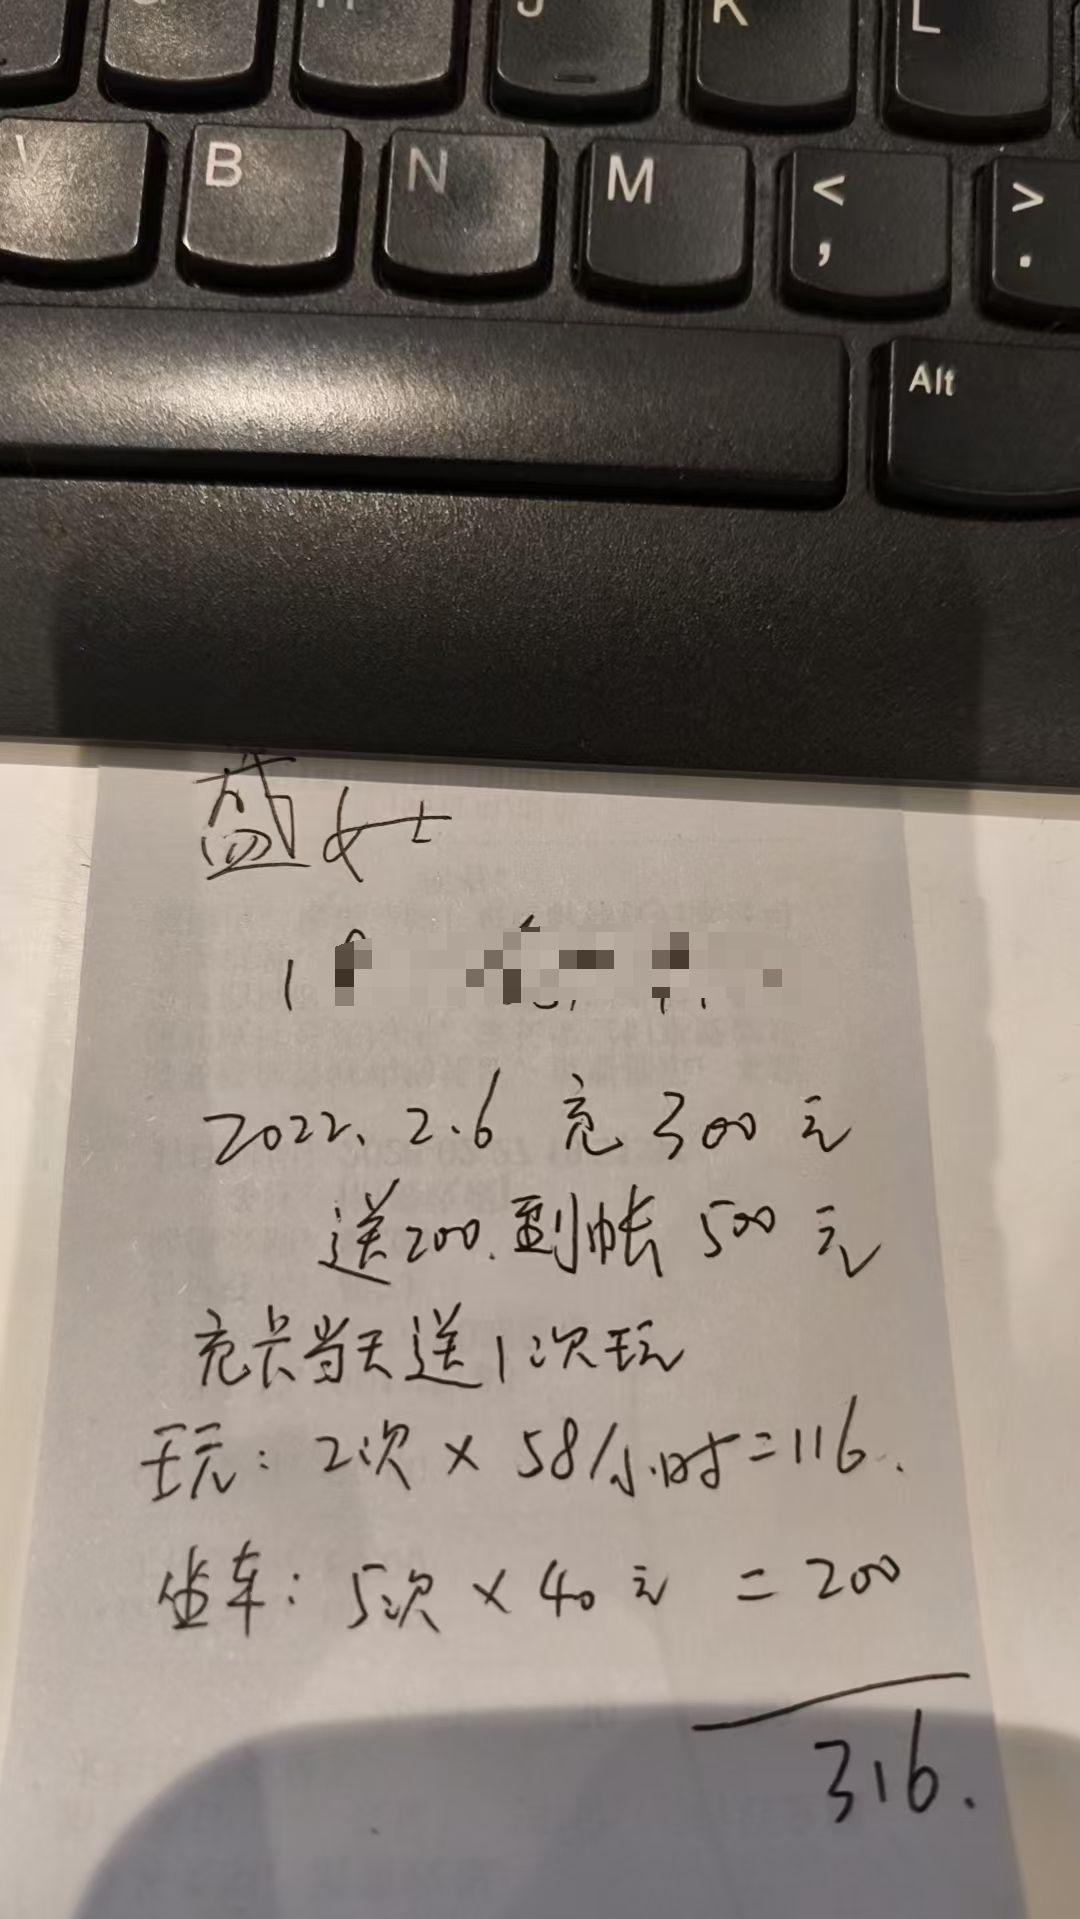 J K L
V B N M < , > .
Alt
盛女士
1
2022、2.6 充300元
送200.到帐500元
充卡当天送1次玩
玩：2次×58/小时=116.
坐车：5次×40元=200
316.